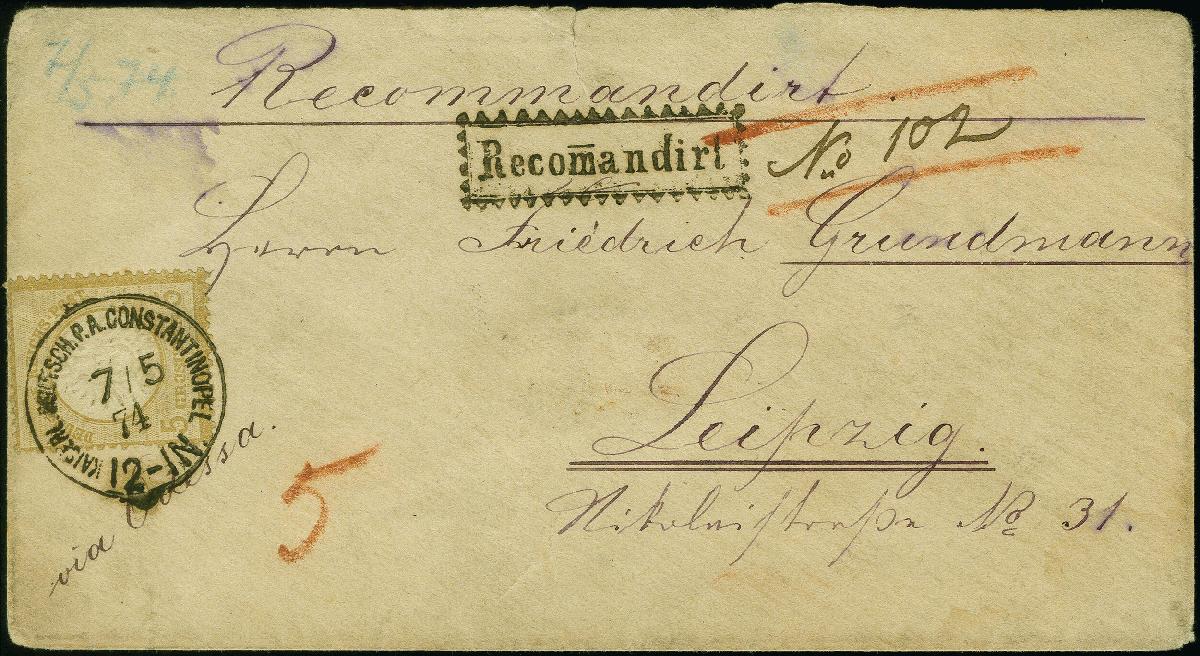 7/5 74
Recommandirt.
Recom̄andirt
No 102
Herrn Friedrich Grundmann
Leipzig.
Nikolaistraße No 31.
KAISERL. DEUTSCH. P.A. CONSTANTINOPEL
7/5
74
12-1N
5
via Odessa.
5